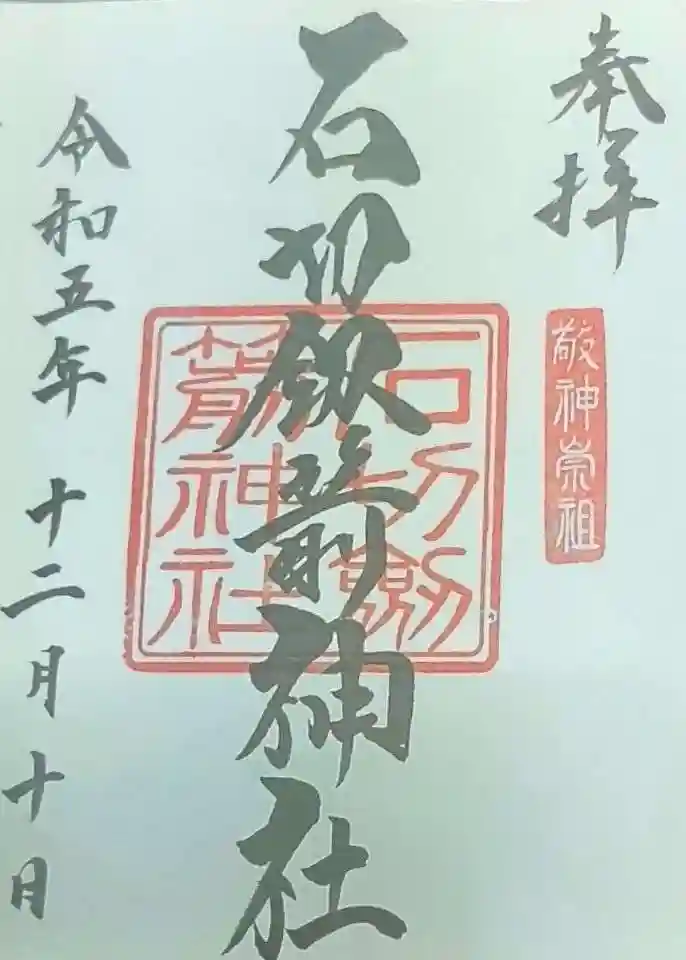 奉拝
敬神崇祖
石切劔箭神社
石切劔
箭神社
令和五年 十二月十日